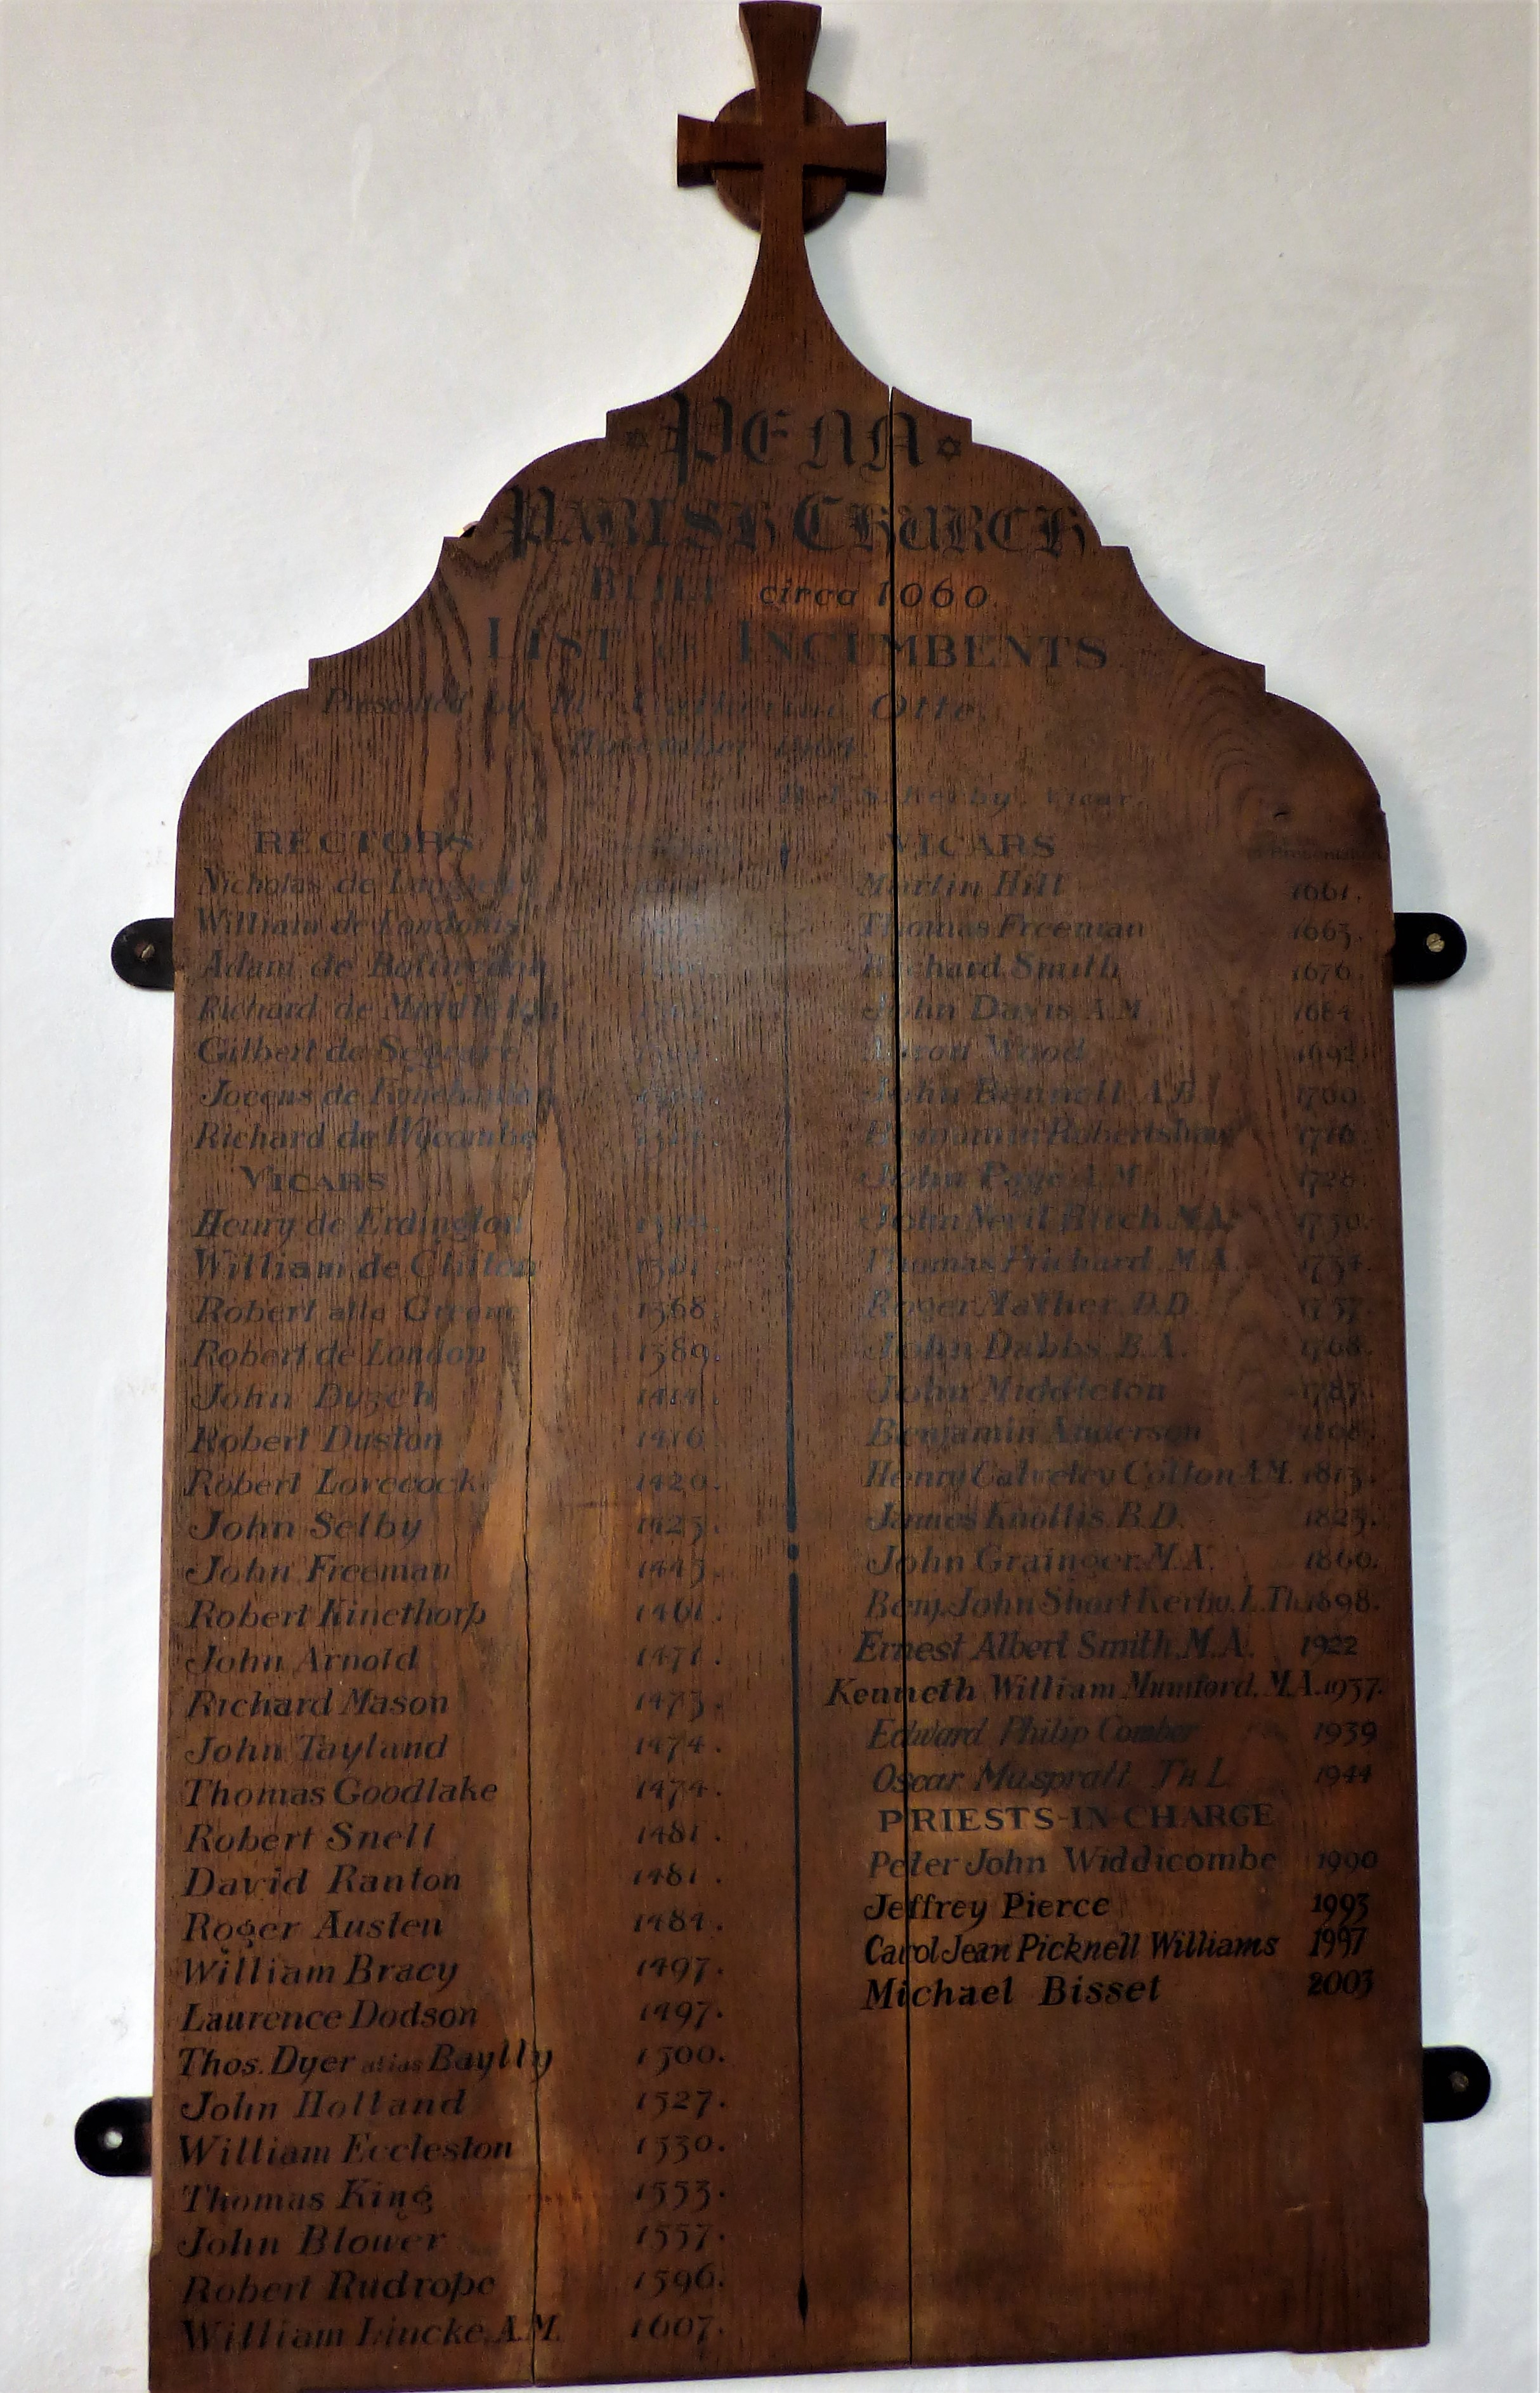 PENN
PARISH CHURCH
BUILT circa 1060
LIST of INCUMBENTS
Presented by Catherine Otto.
November
Kerby. Vicar.
RECTORS
Nicholas de
William de Londoniis
Adam de
Richard de Middleton
Gilbert de Segrave
Jocens de
Richard de Wycombe
VICARS
Henry de Erdington
William de Clifton
Robert atte Grene 1368
Robert de London 1389.
John 1414.
Robert Duston 1416
Robert Lovecock 1420.
John Selby 1425.
John Freeman 1443.
Robert Kinethorp 1461.
John Arnold 1471.
Richard Mason 1473.
John Tayland 1474.
Thomas Goodlake 1474.
Robert Snell 1481.
David Ranton 1481.
Roger Austen 1484.
William Bracy 1497.
Laurence Dodson 1497.
Thos. Dyer alias Baylly 1500.
John Holland 1527.
William Eccleston 1530.
Thomas King 1553.
John Blower 1557.
Robert Rudrope 1596.
William Lincke, A.M. 1607.
VICARS
Martin Hill 1661.
Thomas Freeman 1663.
Richard Smith 1676.
John Davis A.M. 1684
Wood 1692
John Bennell A.B. 1700
Benjamin Robertshaw 1716
John Page A.M. 1728
John Nevil Birch M.A. 1730.
Thomas Prichard. M.A. 1734.
Roger Mather. D.D. 1757.
John Dabbs. B.A. 1768.
John Middleton 1787.
Benjamin Anderson 1808.
Henry Calveley Cotton A.M. 1813.
James Knollis. B.D. 1823.
John Grainger. M.A. 1860.
Benj. John Short Kerby. L.Th. 1898.
Ernest Albert Smith, M.A. 1922
Kenneth William Mumford. M.A. 1937.
Edward Philip Comber 1939
Oscar Muspratt Th L. 1944
PRIESTS-IN-CHARGE
Peter John Widdicombe 1990
Jeffrey Pierce 1993
Carol Jean Picknell Williams 1997
Michael Bisset 2003